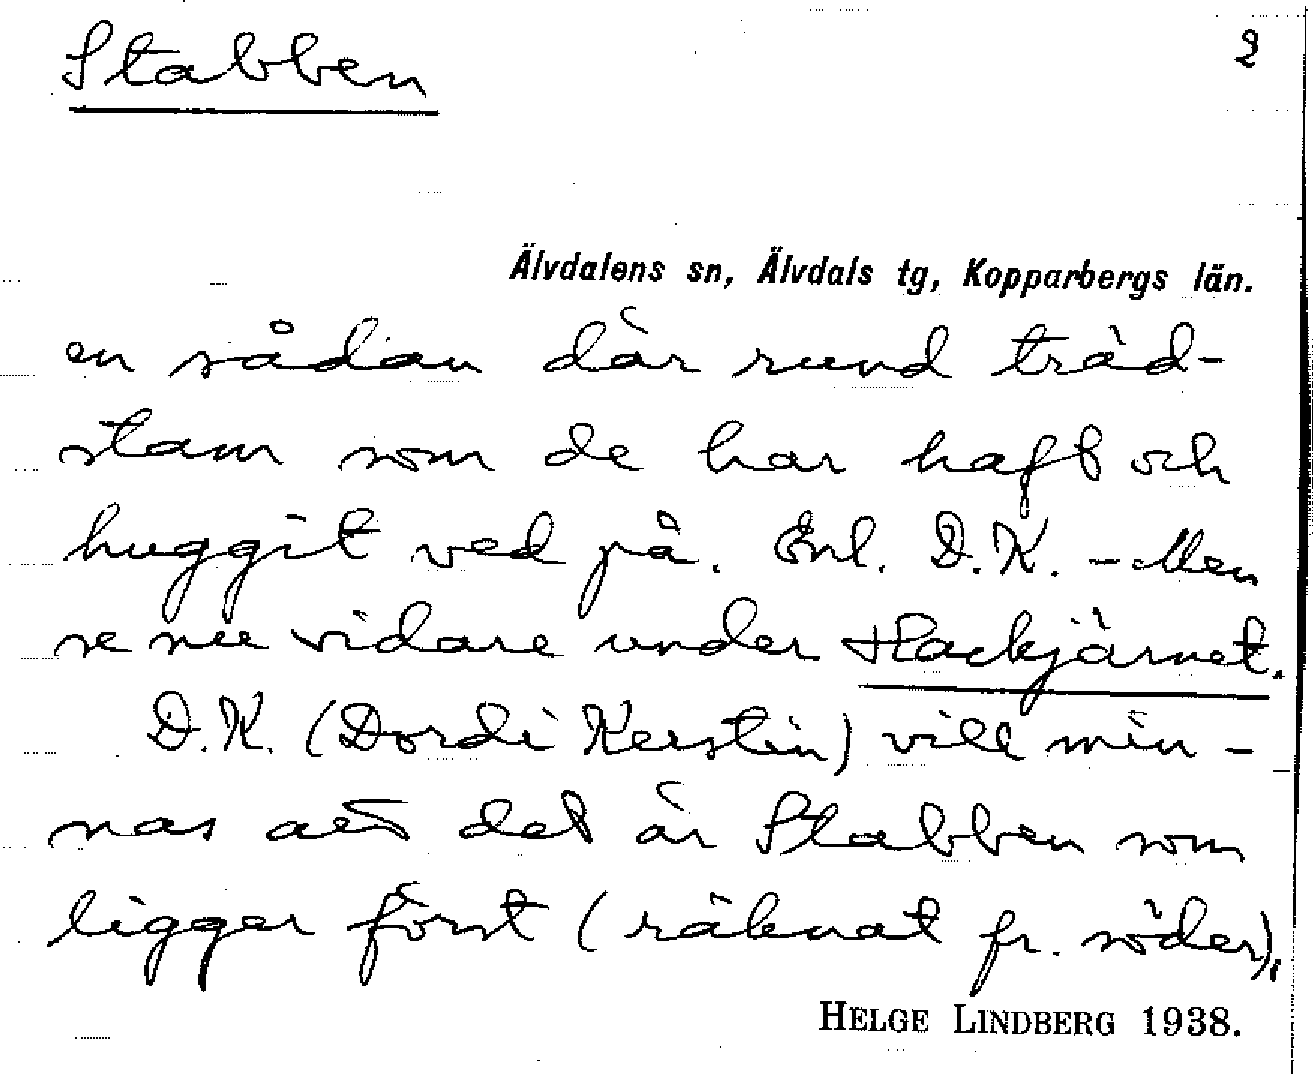 Stabben 2
Älvdalens sn, Älvdals tg, Kopparbergs län.
en sådan där rund träd-
stam som de har haft och
huggit ved på. Enl. D.K. - Men
se nu vidare under Hackjärnet.
D.K. (Dordi Kerstin) vill min-
nas att det är Stabben som
ligger först (räknat fr. söder),
HELGE LINDBERG 1938.